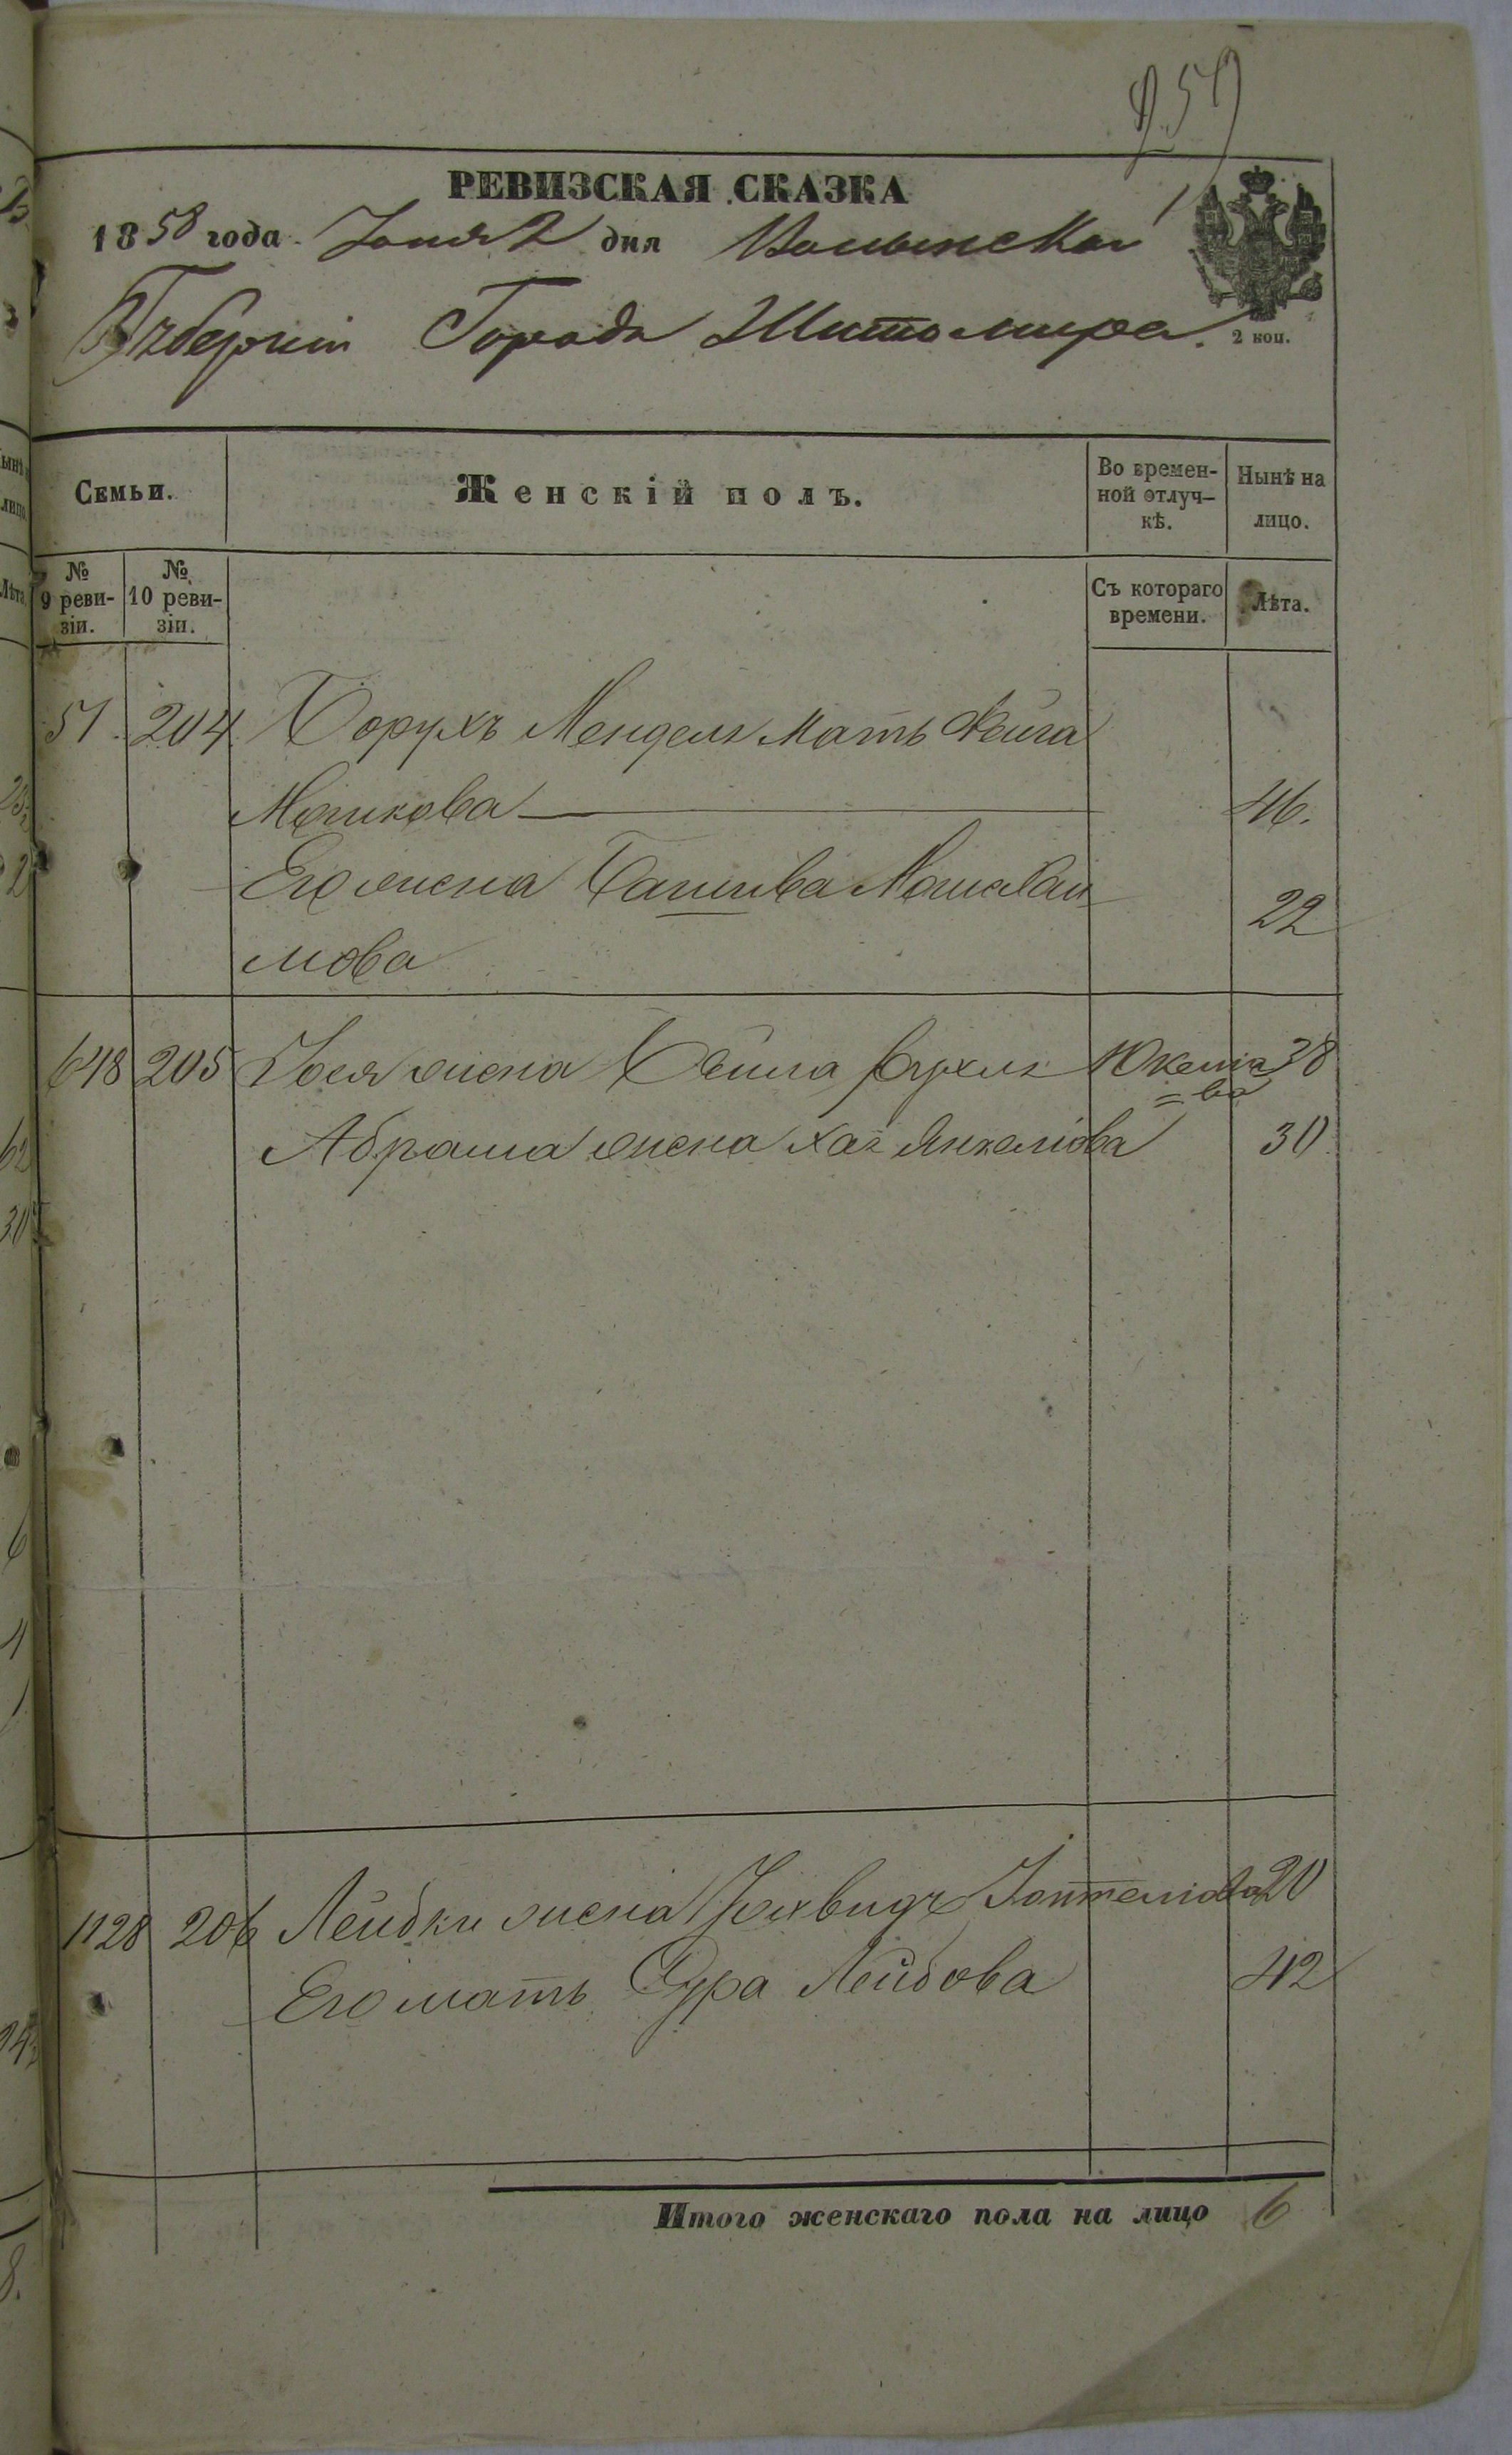 РЕВИЗСКАЯ СКАЗКА
1858 года Іюня 2 дня Волынской
Губерніи Города Житомира.
2 коп.
Семьи.
Женскій полъ.
Во времен-
ной отлуч-
кѣ.
Нынѣ на
лицо.
№
9 реви-
зіи.
№
10 реви-
зіи.
Съ котораго
времени.
Лѣта.
51. 204 Борухъ Мендель мать Фейга
Мошкова 46.
Его жена Башива Мошехаи 22
мова
648 205 Іося жена Бейла Рухля Юкелiо 38
= ва
Абрама жена Хая Янкелiова 30
1128 206 Лейбки жена 20
Его мать Сура Лейбова 42
Итого женскаго пола на лицо 6